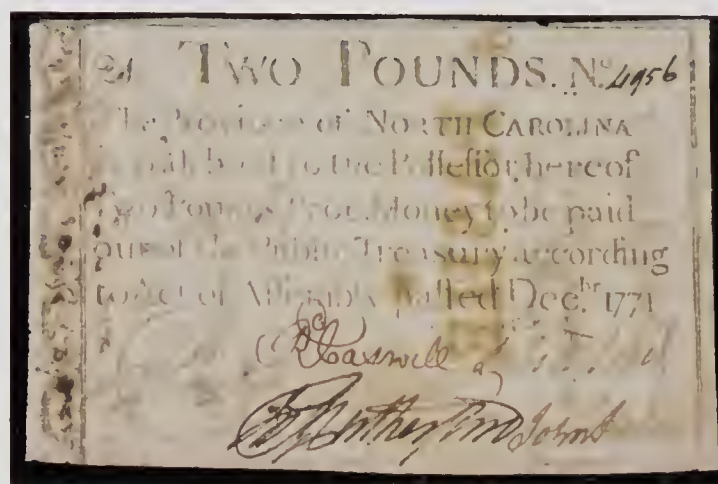 TWO POUNDS. No. 4956
The Province of NORTH CAROLINA
to the Poſſeſſor hereof
Two Pounds Proc. Money to be paid
out of the Public Treasury according
to Act of Aſſembly paſſed Decbr. 1771
R Caswell
Rutherfurd John